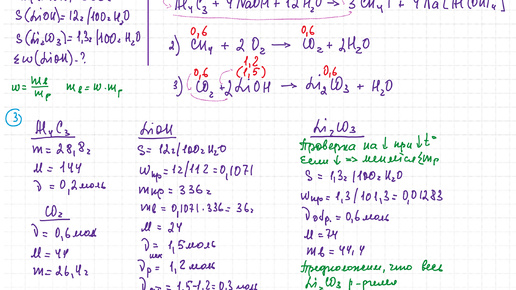 S(LiOH)=12г/100г H₂O
S(Li₂CO₃)=1,3г/100г H₂O
Σω(LiOH)-?
ω=mв/mр mв=ω·mр
Al₄C₃ + 4NaOH + 12H₂O → 3CH₄↑ + 4Na[Al(OH)₄]
0,6 0,6
2) CH₄ + 2O₂ → CO₂ + 2H₂O
1,2
0,6 (1,5) 0,6
3) CO₂ + 2LiOH → Li₂CO₃ + H₂O
③
Al₄C₃
m = 28,8г
M = 144
ν = 0,2моль
CO₂
ν = 0,6моль
M = 44
m = 26,4г
LiOH
S = 12г/100г H₂O
ωнр = 12/112 = 0,1071
mнр = 336г
mв = 0,1071·336 = 36г
M = 24
ν исх = 1,5моль
νр = 1,2моль
= 1,5-1,2 = 0,3моль
Li₂CO₃
Проверка на ↓ при ↓t°
Если ↓ => меняется mр
S = 1,3г/100г H₂O
ωнр = 1,3/101,3 = 0,01283
νобр. = 0,6моль
M = 74
mв = 44,4
Предположим, что весь
Li₂CO₃ р-рился